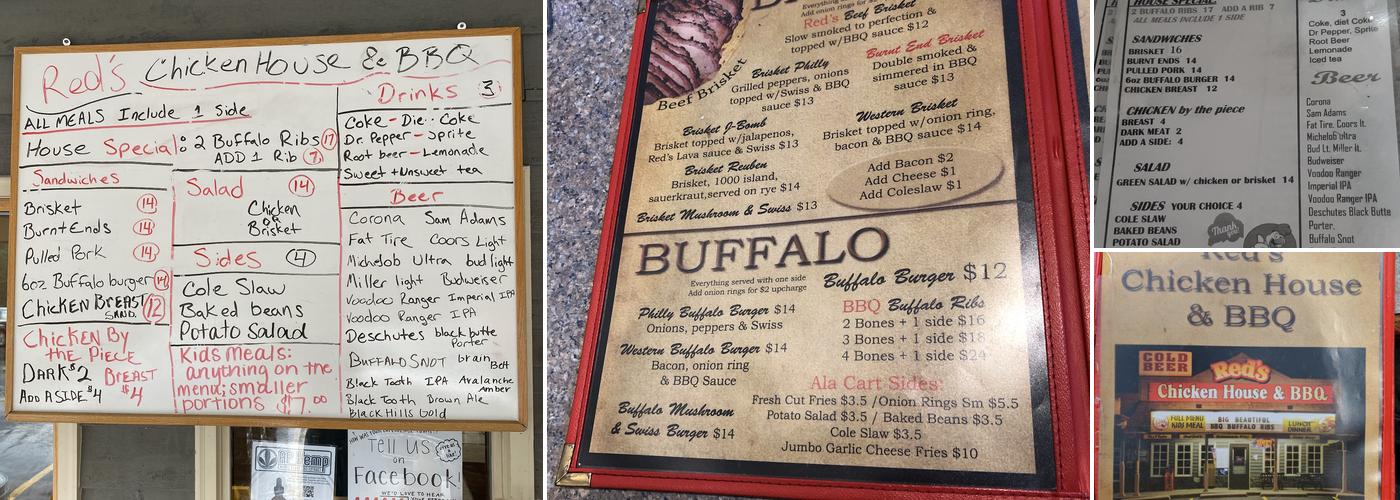 Red's Chicken House & BBQ
ALL MEALS Include 1 Side
House Special: 2 Buffalo Ribs 17
ADD 1 Rib 7
Sandwiches
Brisket 14
Burnt Ends 14
Pulled Pork 14
6oz Buffalo burger 14
Chicken BREAST SAND. 12
Chicken By the Piece
DARK $2 BREAST $4
ADD A SIDE $4
Salad 14
Chicken
or
Brisket
Sides 4
Cole Slaw
Baked beans
Potato Salad
Kids meals:
anything on the
menu; smaller
portions $7.00
Drinks 3
Coke - Die Coke
Dr. Pepper - Sprite
Root beer - Lemonade
Sweet + Unsweet tea
Beer
Corona Sam Adams
Fat Tire Coors Light
Michelob Ultra bud light
Miller light Budweiser
Voodoo Ranger Imperial IPA
Voodoo Ranger IPA
Deschutes black butte Porter
BUFFALO SNOT brain Belt
Black Tooth IPA Avalanche Amber
Black Tooth Brown Ale
Black Hills Gold
Tell us
on
Facebook!
WE'D LOVE TO HEAR
Everything
Add onion rings for $2
Red's Beef Brisket
Slow smoked to perfection &
topped w/BBQ sauce $12
Beef Brisket
Brisket Philly
Grilled peppers, onions
topped w/Swiss & BBQ
sauce $13
Burnt End Brisket
Double smoked &
simmered in BBQ
sauce $13
Brisket J-Bomb
Brisket topped w/jalapenos,
Red's Lava sauce & Swiss $13
Western Brisket
Brisket topped w/onion ring,
bacon & BBQ sauce $14
Brisket Reuben
Brisket, 1000 island,
sauerkraut,served on rye $14
Brisket Mushroom & Swiss $13
Add Bacon $2
Add Cheese $1
Add Coleslaw $1
BUFFALO
Everything served with one side
Add onion rings for $2 upcharge
Philly Buffalo Burger $14
Onions, peppers & Swiss
Western Buffalo Burger $14
Bacon, onion ring
& BBQ Sauce
Buffalo Mushroom
& Swiss Burger $14
Buffalo Burger $12
BBQ Buffalo Ribs
2 Bones + 1 side $16
3 Bones + 1 side $18
4 Bones + 1 side $24
Ala Cart Sides:
Fresh Cut Fries $3.5 /Onion Rings Sm $5.5
Potato Salad $3.5 / Baked Beans $3.5
Cole Slaw $3.5
Jumbo Garlic Cheese Fries $10
HOUSE SPECIAL:
2 BUFFALO RIBS 17 ADD A RIB 7
ALL MEALS INCLUDE 1 SIDE
SANDWICHES
BRISKET 16
BURNT ENDS 14
PULLED PORK 14
6oz BUFFALO BURGER 14
CHICKEN BREAST 12
CHICKEN by the piece
BREAST 4
DARK MEAT 2
ADD A SIDE: 4
SALAD
GREEN SALAD w/ chicken or brisket 14
SIDES YOUR CHOICE 4
COLE SLAW
BAKED BEANS
POTATO SALAD
Thank you
3
Coke, diet Coke
Dr Pepper, Sprite
Root Beer
Lemonade
Iced tea
Beer
Corona
Sam Adams
Fat Tire, Coors lt.
Michelob ultra
Bud Lt. Miller lt.
Budweiser
Voodoo Ranger
Imperial IPA
Voodoo Ranger IPA
Deschutes Black Butte
Porter.
Buffalo Snot
Red's
Chicken House
& BBQ
COLD BEER
Red's
Chicken House & BBQ
FULL MENU
KIDS MEAL
BIG BEAUTIFUL
BBQ BUFFALO RIBS
LUNCH
DINNER